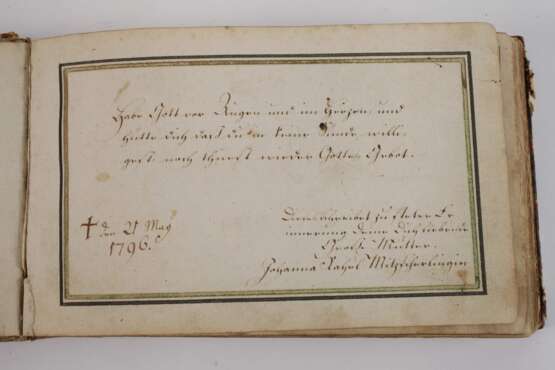 Habe Gott vor Augen und im Herzen, und
hütte dich daß du in keine Sünde wille-
gest, noch thuest wieder Gottes Gebot.
† den 21 May
1796.
Dieses schreibet zu steter Er
innerung deine dich liebende
Groß Mutter.
Johanna Rahel Mitzscherlingin